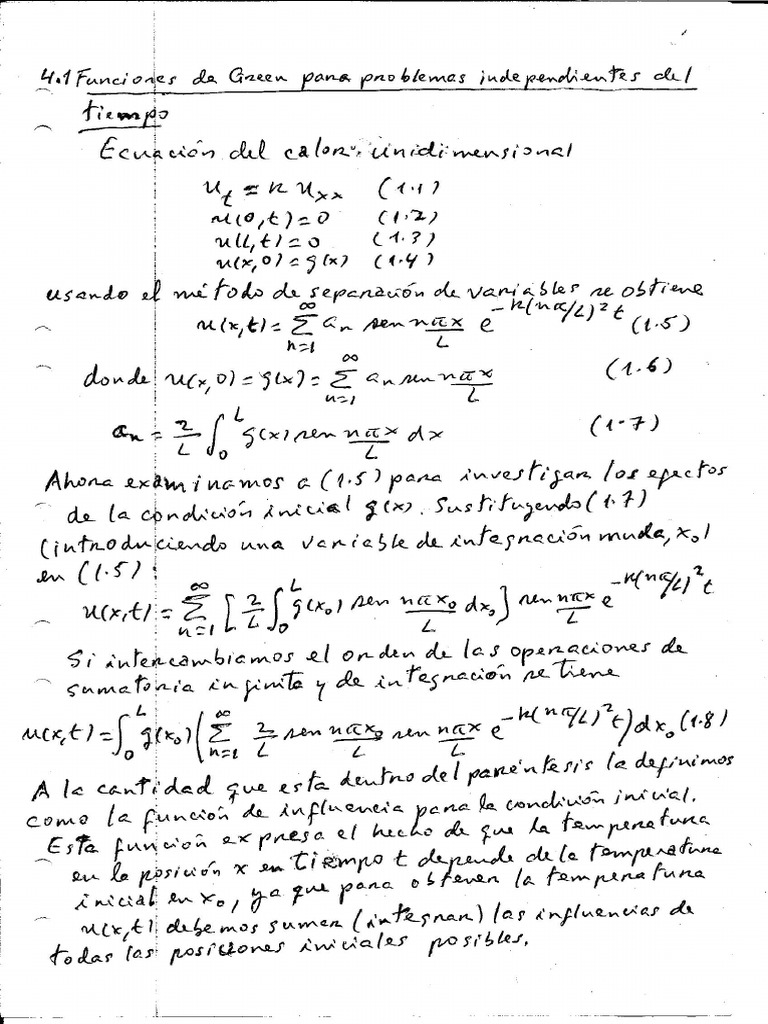 4.1 Funciones de Green para problemas independientes del
tiempo
Ecuación del calor unidimensional
u_t = k u_xx (1.1)
u(0,t)=0 (1.2)
u(L,t)=0 (1.3)
u(x,0)=g(x) (1.4)
usando el método de separación de variables se obtiene
u(x,t)= ∑_{n=1}^{∞} a_n sen nπx/L e^{-k(nπ/L)^2 t} (1.5)
donde u(x,0)=g(x)= ∑_{n=1}^{∞} a_n sen nπx/L (1.6)
a_n = 2/L ∫_0^L g(x) sen nπx/L dx (1.7)
Ahora examinamos a (1.5) para investigar los efectos
de la condición inicial g(x). Sustituyendo (1.7)
(introduciendo una variable de integración muda, x_0)
en (1.5):
u(x,t)= ∑_{n=1}^{∞} [2/L ∫_0^L g(x_0) sen nπx_0/L dx_0] sen nπx/L e^{-k(nπ/L)^2 t}
Si intercambiamos el orden de las operaciones de
sumatoria infinita y de integración se tiene
u(x,t)= ∫_0^L g(x_0) (∑_{n=1}^{∞} 2/L sen nπx_0/L sen nπx/L e^{-k(nπ/L)^2 t}) dx_0 (1.8)
A la cantidad que esta dentro del paréntesis la definimos
como la función de influencia para la condición inicial.
Esta función expresa el hecho de que la temperatura
en la posición x en tiempo t depende de la temperatura
inicial en x_0, ya que para obtener la temperatura
u(x,t) debemos sumar (integrar) las influencias de
todas las posiciones iniciales posibles.